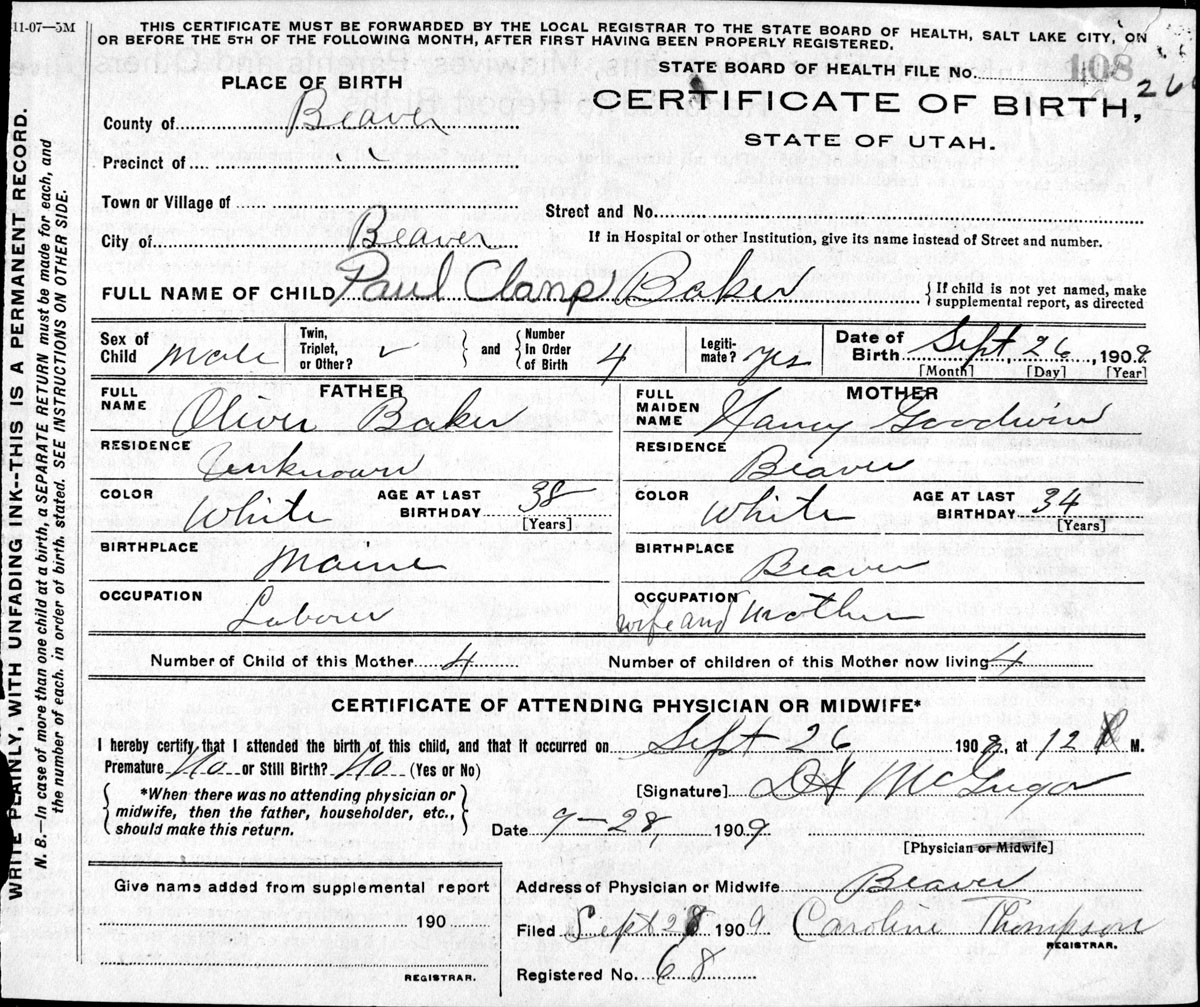 11-07—5M
THIS CERTIFICATE MUST BE FORWARDED BY THE LOCAL REGISTRAR TO THE STATE BOARD OF HEALTH, SALT LAKE CITY, ON
OR BEFORE THE 5TH OF THE FOLLOWING MONTH, AFTER FIRST HAVING BEEN PROPERLY REGISTERED.
STATE BOARD OF HEALTH FILE No. 108
26
PLACE OF BIRTH
CERTIFICATE OF BIRTH,
STATE OF UTAH.
County of Beaver
Precinct of " "
Town or Village of
Street and No.
City of Beaver
If in Hospital or other Institution, give its name instead of Street and number.
FULL NAME OF CHILD Paul Clamp Baker
{If child is not yet named, make
supplemental report, as directed
Sex of Child Male
Twin, Triplet, or Other? ✓ } and { Number in Order of Birth 4
Legiti-mate? yes
Date of Birth Sept 26, 1909
[Month] [Day] [Year]
FATHER
FULL NAME Oliver Baker
RESIDENCE Unknown
COLOR White AGE AT LAST BIRTHDAY 38 [Years]
BIRTHPLACE Maine
OCCUPATION Laborer
MOTHER
FULL MAIDEN NAME Nancy Goodwin
RESIDENCE Beaver
COLOR White AGE AT LAST BIRTHDAY 34 [Years]
BIRTHPLACE Beaver
OCCUPATION wife and Mother
Number of Child of this Mother 4 Number of children of this Mother now living 4
CERTIFICATE OF ATTENDING PHYSICIAN OR MIDWIFE*
I hereby certify that I attended the birth of this child, and that it occurred on Sept 26, 1909, at 12 P M.
Premature No or Still Birth? No (Yes or No)
{ *When there was no attending physician or
midwife, then the father, householder, etc.,
should make this return. }
[Signature] McGregor
Date 9-28, 1909
[Physician or Midwife]
Give name added from supplemental report
190
REGISTRAR.
Address of Physician or Midwife Beaver
Filed Sept 28 1909 Caroline Thompson
REGISTRAR.
Registered No. 68
WRITE PLAINLY, WITH UNFADING INK--THIS IS A PERMANENT RECORD.
N. B.—In case of more than one child at a birth, a SEPARATE RETURN must be made for each, and
the number of each, in order of birth, stated. SEE INSTRUCTIONS ON OTHER SIDE.